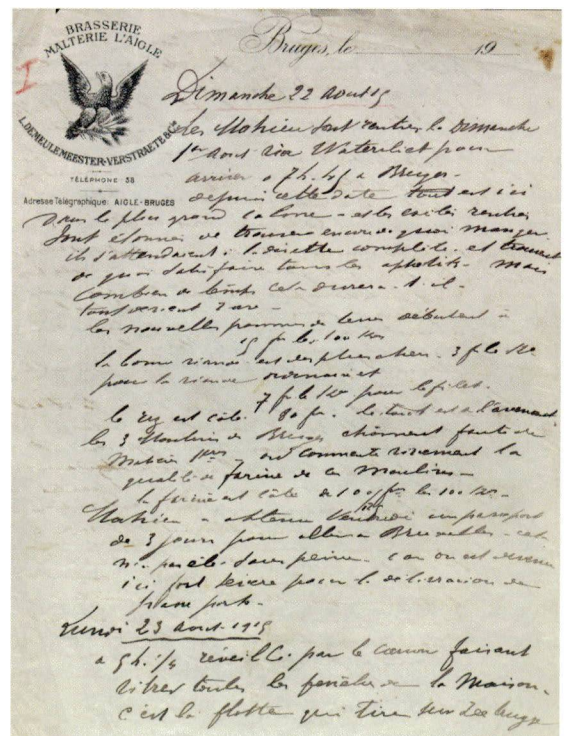 I
BRASSERIE
MALTERIE L'AIGLE
L. DEMEULEMEESTER-VERSTRAETE & Cie
TÉLÉPHONE 38
Adresse Télégraphique: AIGLE-BRUGES
Bruges, le 19
Dimanche 22 aout 15
Les Mahieu sont rentrés le dimanche
1er aout via Watervliet pour
arriver a 7 h. a Bruges -
depuis cette date tout est ici
dans le plus grand calme - et les exilés rentrés
sont étonnés de trouver encore de quoi manger
ils s'attendaient à la disette complète - et trouvent
de quoi satisfaire tous les appétits - mais
combien de temps cela durera-t-il -
tout devient rare -
les nouvelles pommes de terre débutent à
15 fr les 100 Kos
la bonne viande est des plus chère - 3 f le Ko
pour la viande ordinaire et
7 f le Ko pour le filet -
le riz est côté 80 fr. le tout est à l'avenant
les 3 Moulins de Bruges chôment faute de
matière 1ères - on commente vivement la
qualité de farine de ces moulins -
la farine est côté de 100 fr les 100 Kos -
Mahieu a obtenu Vendredi un passeport
de 3 jours pour aller a Bruxelles - cela
n'a pas été sans peine - car on est devenu
ici fort sévère pour la délivrance de
passe ports -
Lundi 23 aout 1915
a 5 h. 1/4 réveillé par le canon faisant
vibrer toutes les fenêtres de la Maison -
c'est la flotte qui tire sur Zeebrugge